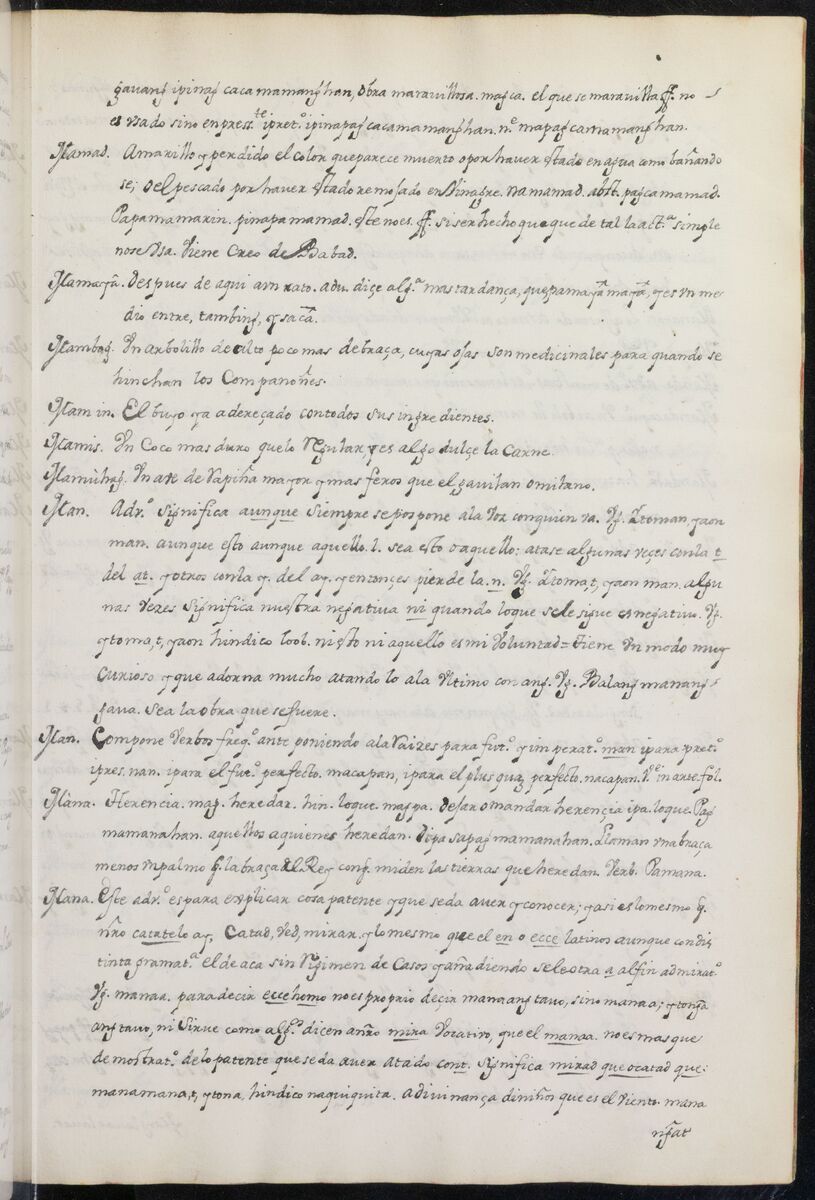 gauang ipinag caca mamanghan, obra maravillosa. mag.ca. el que se maravilla ff. no
es usado sino en pres.te i pret.o ipinapagcacamamanghan. n.o mapagcamamanghan.
Mamad. Amarillo y perdido el color que parece muerto o por haver estado en agua como bañando
se; o el pescado por haver estado remojado en Vinagre. na mamad. abst. pagcamamad.
Papamamarin. pinapamamad. este no es ff. si ser hecho que que de tal la act.a simple
no se usa. Viene Creo de Babad.
Mamayã. Despues de aqui a un rato. adu. diçe alg.a mas tardança, que pamayã mayã, y es un me
dio entre, tambing, y sacã.
Mambog. Un arbolillo de alto poco mas de braça, cuyas ojas son medicinales para quando se
hinchan los Compañones.
Mamin. El buyo ya adereçado con todos sus ingredientes.
Mamis. Un Coco mas duro que lo Regular, y es algo dulçe la Carne.
Mamùhag. Un ave de rapiña mayor y mas feros que el gavilan o milano.
Man. Adv.o significa aunque siempre se pospone a la Voz con quien va. Vg. Itoman, yaon
man. aunque esto aunque aquello. l. sea esto o aquello: atase algunas veçes con la t
del at. y otros con la y. del ay. y entonçes pierde la .n. Vg. Itoma,t, yaon man. algu
nas vezes significa nuestra negativa ni quando lo que se le sigue es negativo. Vg.
ytoma,t, yaon hindico loob. ni esto ni aquello es mi Voluntad = Tiene Un modo muy
curioso y que adorna mucho atando lo a la Ultimo con ang. Vg. Balang manang
gava. sea la obra que se fuere.
Man. Compone Verbos freq.s ante poniendo a la Raizes para fut.o y imperat.o man i para pret.o
i pres. nan. i para el fut.o perfecto. macapan, i para el plus quã perfecto. nacapan. V.e in arte. fol.
Màna. Herencia. mag. heredar. hin. lo que. magpa. dejar o mandar herençia ipa. lo que. Pag
mamanahan. aquellos a quienes heredan. Dipa sa pag mamanahan. Llaman una braça
menos un palmo q. la braça del Rey con q. miden las tierras que heredan. Verb. Pamana.
Mana. Este adv.o es para explicar cosa patente y que se da a ver y conocer; y asi es lo mesmo q.
nr̃o catatelo ay, Catad, Ved, mirar. y lo mesmo que el en o ecce latinos aunque con dis
tinta gramat.a el de aca sin Regimen de Casos y añadiendo sele otra a al fin admirat.o
Vg. manaa. para decir ecce homo no es proprio deçir mana ang tavo, sino manaa; ytong̃a
ang tavo, ni Sirve como alg.s dicen a nr̃o mira Vocativo, que el manaa. no es mas que
demostrat.o de lo patente que se da a ver atado con t. significa mirad que o catad que:
manamana,t, ytona, hindico naquiquita. adivinança di niños que es el Viento. mana
ng̃at